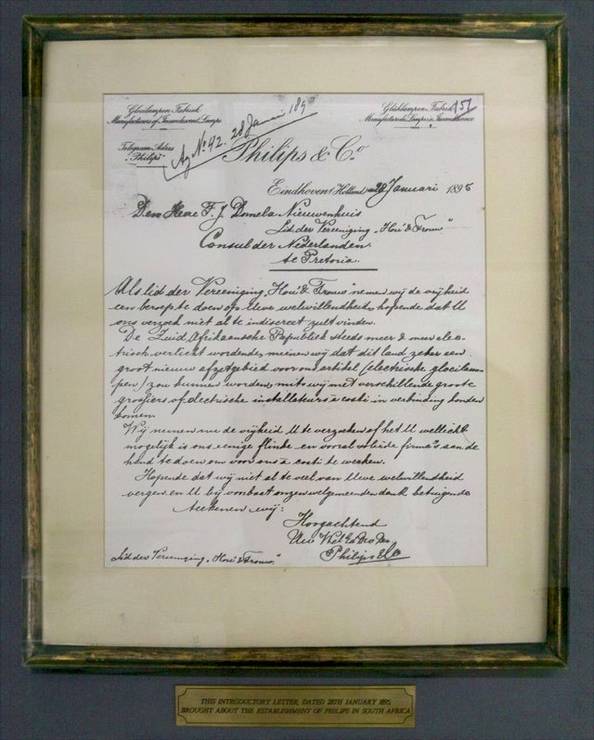 Gloeilampen Fabriek
Manufacturers of Incandescent Lamps
Glühlampen Fabrik
Manufacture de Lampes à Incandescence
Telegram Adres
"Philips"
No 42. 28 Januari 189
Philips & Co.
Eindhoven (Holland) 28 Januari 1895
Den Heere F. J. Domela Nieuwenhuis
Lid der Vereeniging "Hou' & Trouw"
Consul der Nederlanden
te Pretoria.
Als lid der Vereeniging "Hou' & Trouw" nemen wij de vrijheid
een beroep te doen op Uwe welwillendheid, hopende dat U
ons verzoek niet al te indiscreet zult vinden.
De Zuid Afrikaansche Republiek steeds meer & meer elec-
trisch verlicht wordende, meenen wij dat dit land zeker een
groot nieuw afzetgebied voor ons artikel (electrische gloeilam-
pen) zou kunnen worden, mits wij met verschillende groote
grossiers of electrische installateurs à costi in verbinding konden
komen.
Wij nemen nu de vrijheid U te verzoeken of het U wellicht
mogelijk is ons eenige flinke en vooral solide firma's aan de
hand te doen om voor ons à costi te werken.
Hopende dat wij niet al te veel van Uwe welwillendheid
vergen en U bij voorbaat onzen welgemeenden dank betuigende
teekenen wij:
Hoogachtend
Uw
Philips & Co
Lid der Vereeniging "Hou' & Trouw"
THIS INTRODUCTORY LETTER, DATED 28TH JANUARY 1895,
BROUGHT ABOUT THE ESTABLISHMENT OF PHILIPS IN SOUTH AFRICA